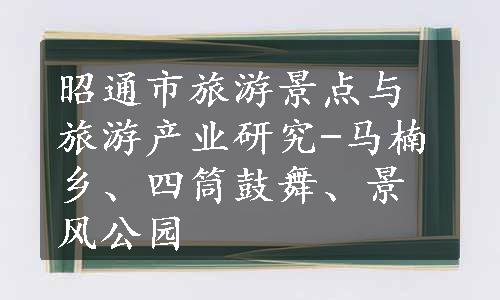 昭通市旅游景点与
旅游产业研究-马楠
乡、四筒鼓舞、景
风公园